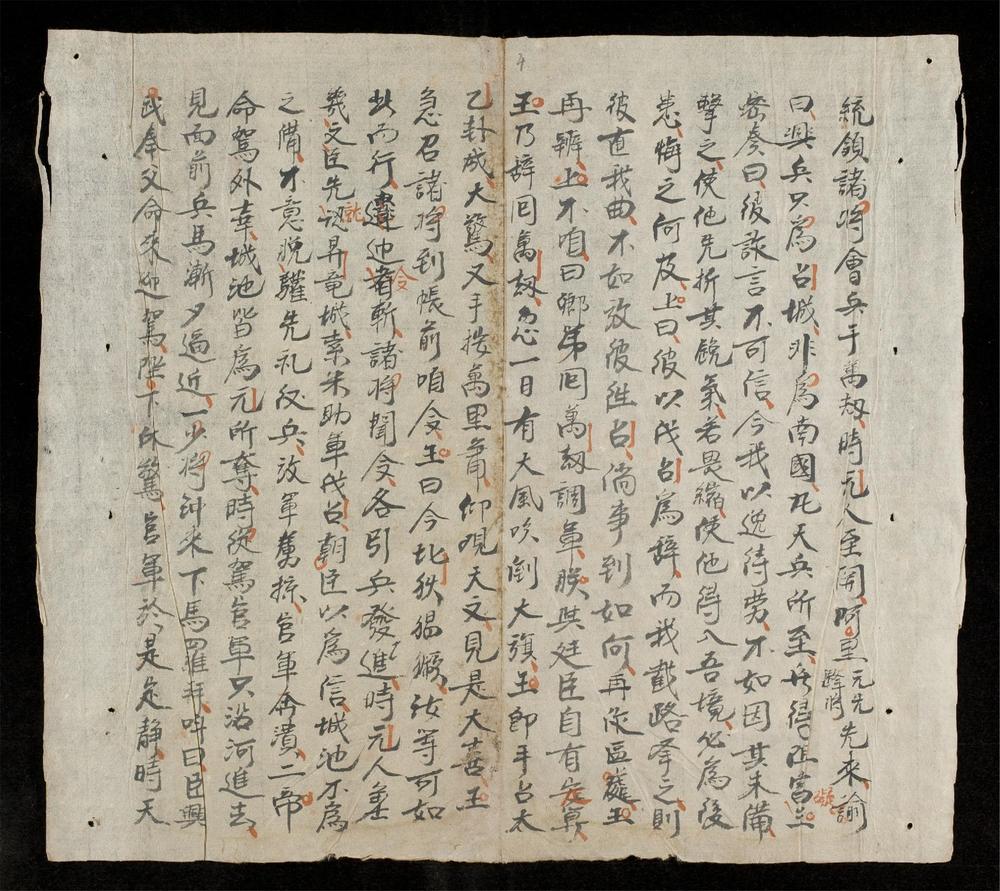 統領諸將會兵于萬刼時元人至関阿里元先鋒將先來諭
曰興兵只為占城非為南國凡天兵所至毋得阻當礙王
密奏曰彼詼言不可信今我以逸待勞不如因其未備
擊之使他先折其銳氣若畏縮使他得入吾境必為後
患悔之何及上曰彼以伐占為辞而我截路拳之則
彼直我曲不如放彼徃占倘事到如何再依區處王
再辨上不咱曰卿第囘萬刼調軍朕與廷臣自有定算
王乃辞囘萬刼忽一日有大風吹倒大旗王即手占太
乙卦成大驚又手挨萬里甯仰覌天文見是大喜王
急召諸將到帳前咱令王曰今北狄猖獗汝等可如
此而行違迯者令斬諸將聞令各引兵發進時元人並
㡬文臣先詑昇竜城索米助軍伐占朝臣以為信城池不為
之備才意脱驩先礼後兵放軍勇掠官軍奔潰二帝
命駕外幸城池皆為元所奪時從駕官軍只沿河進去
見面前兵馬漸夕逼近一少將到來下馬羅拜呌曰臣興
武奉父命來迎駕陛下休驚官軍於是定静時天
4